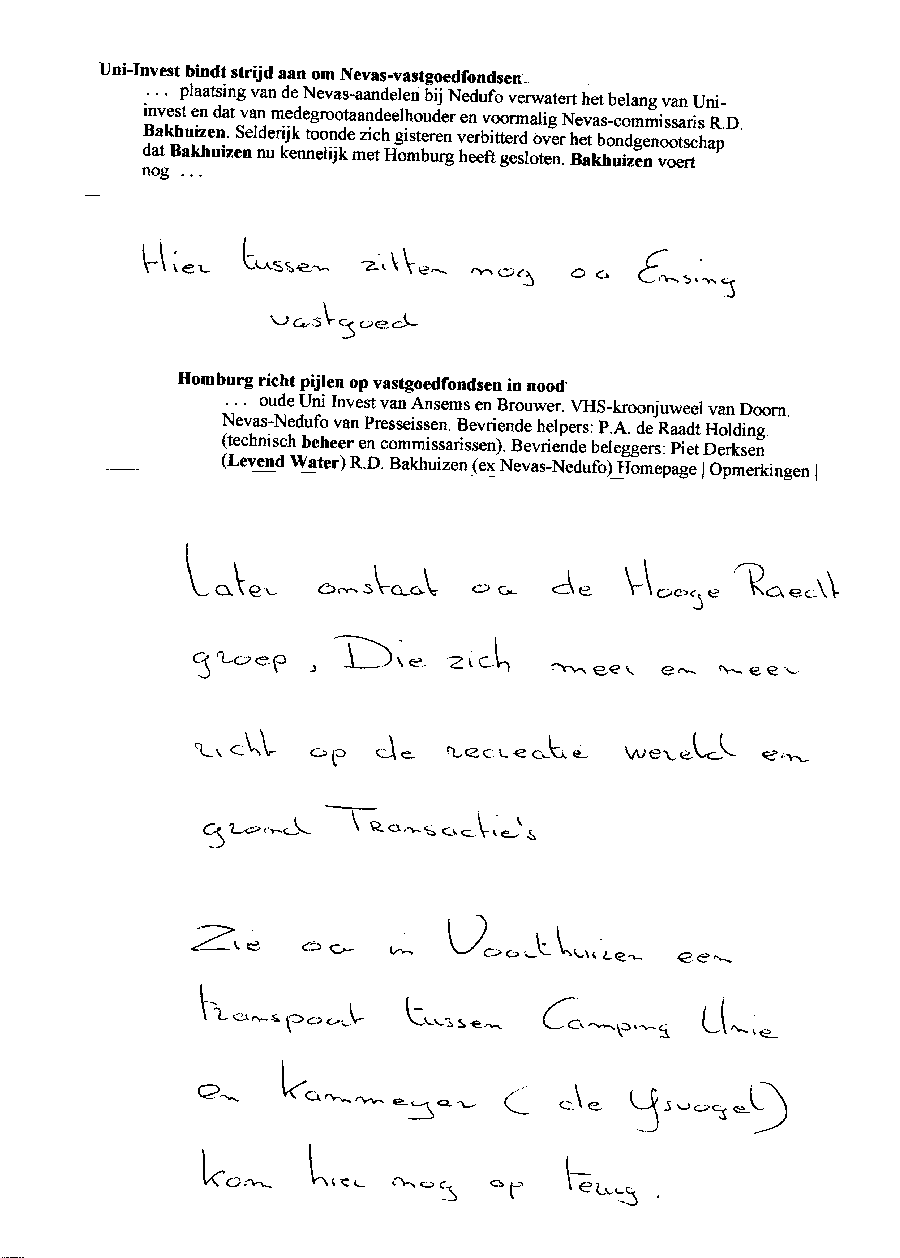 Uni-Invest bindt strijd aan om Nevas-vastgoedfondsen
... plaatsing van de Nevas-aandelen bij Nedufo verwatert het belang van Uni-
invest en dat van medegrootaandeelhouder en voormalig Nevas-commissaris R.D.
Bakhuizen. Selderijk toonde zich gisteren verbitterd over het bondgenootschap
dat Bakhuizen nu kennelijk met Homburg heeft gesloten. Bakhuizen voert
nog ...
Hier tussen zitten nog oa Ensing
vastgoed
Homburg richt pijlen op vastgoedfondsen in nood
... oude Uni Invest van Ansems en Brouwer. VHS-kroonjuweel van Doorn.
Nevas-Nedufo van Presseissen. Bevriende helpers: P.A. de Raadt Holding.
(technisch beheer en commissarissen). Bevriende beleggers: Piet Derksen
(Levend Water) R.D. Bakhuizen (ex Nevas-Nedufo) Homepage | Opmerkingen |
Later omstaat oa de Hooge Raedt
groep, Die zich meer en meer
richt op de recreatie wereld en
grond Transactie's
Zie oa in Voorthuizen een
transpoort tussen Camping Unie
en Kammeyer ( de Ysvogel)
kom hier nog op terug.